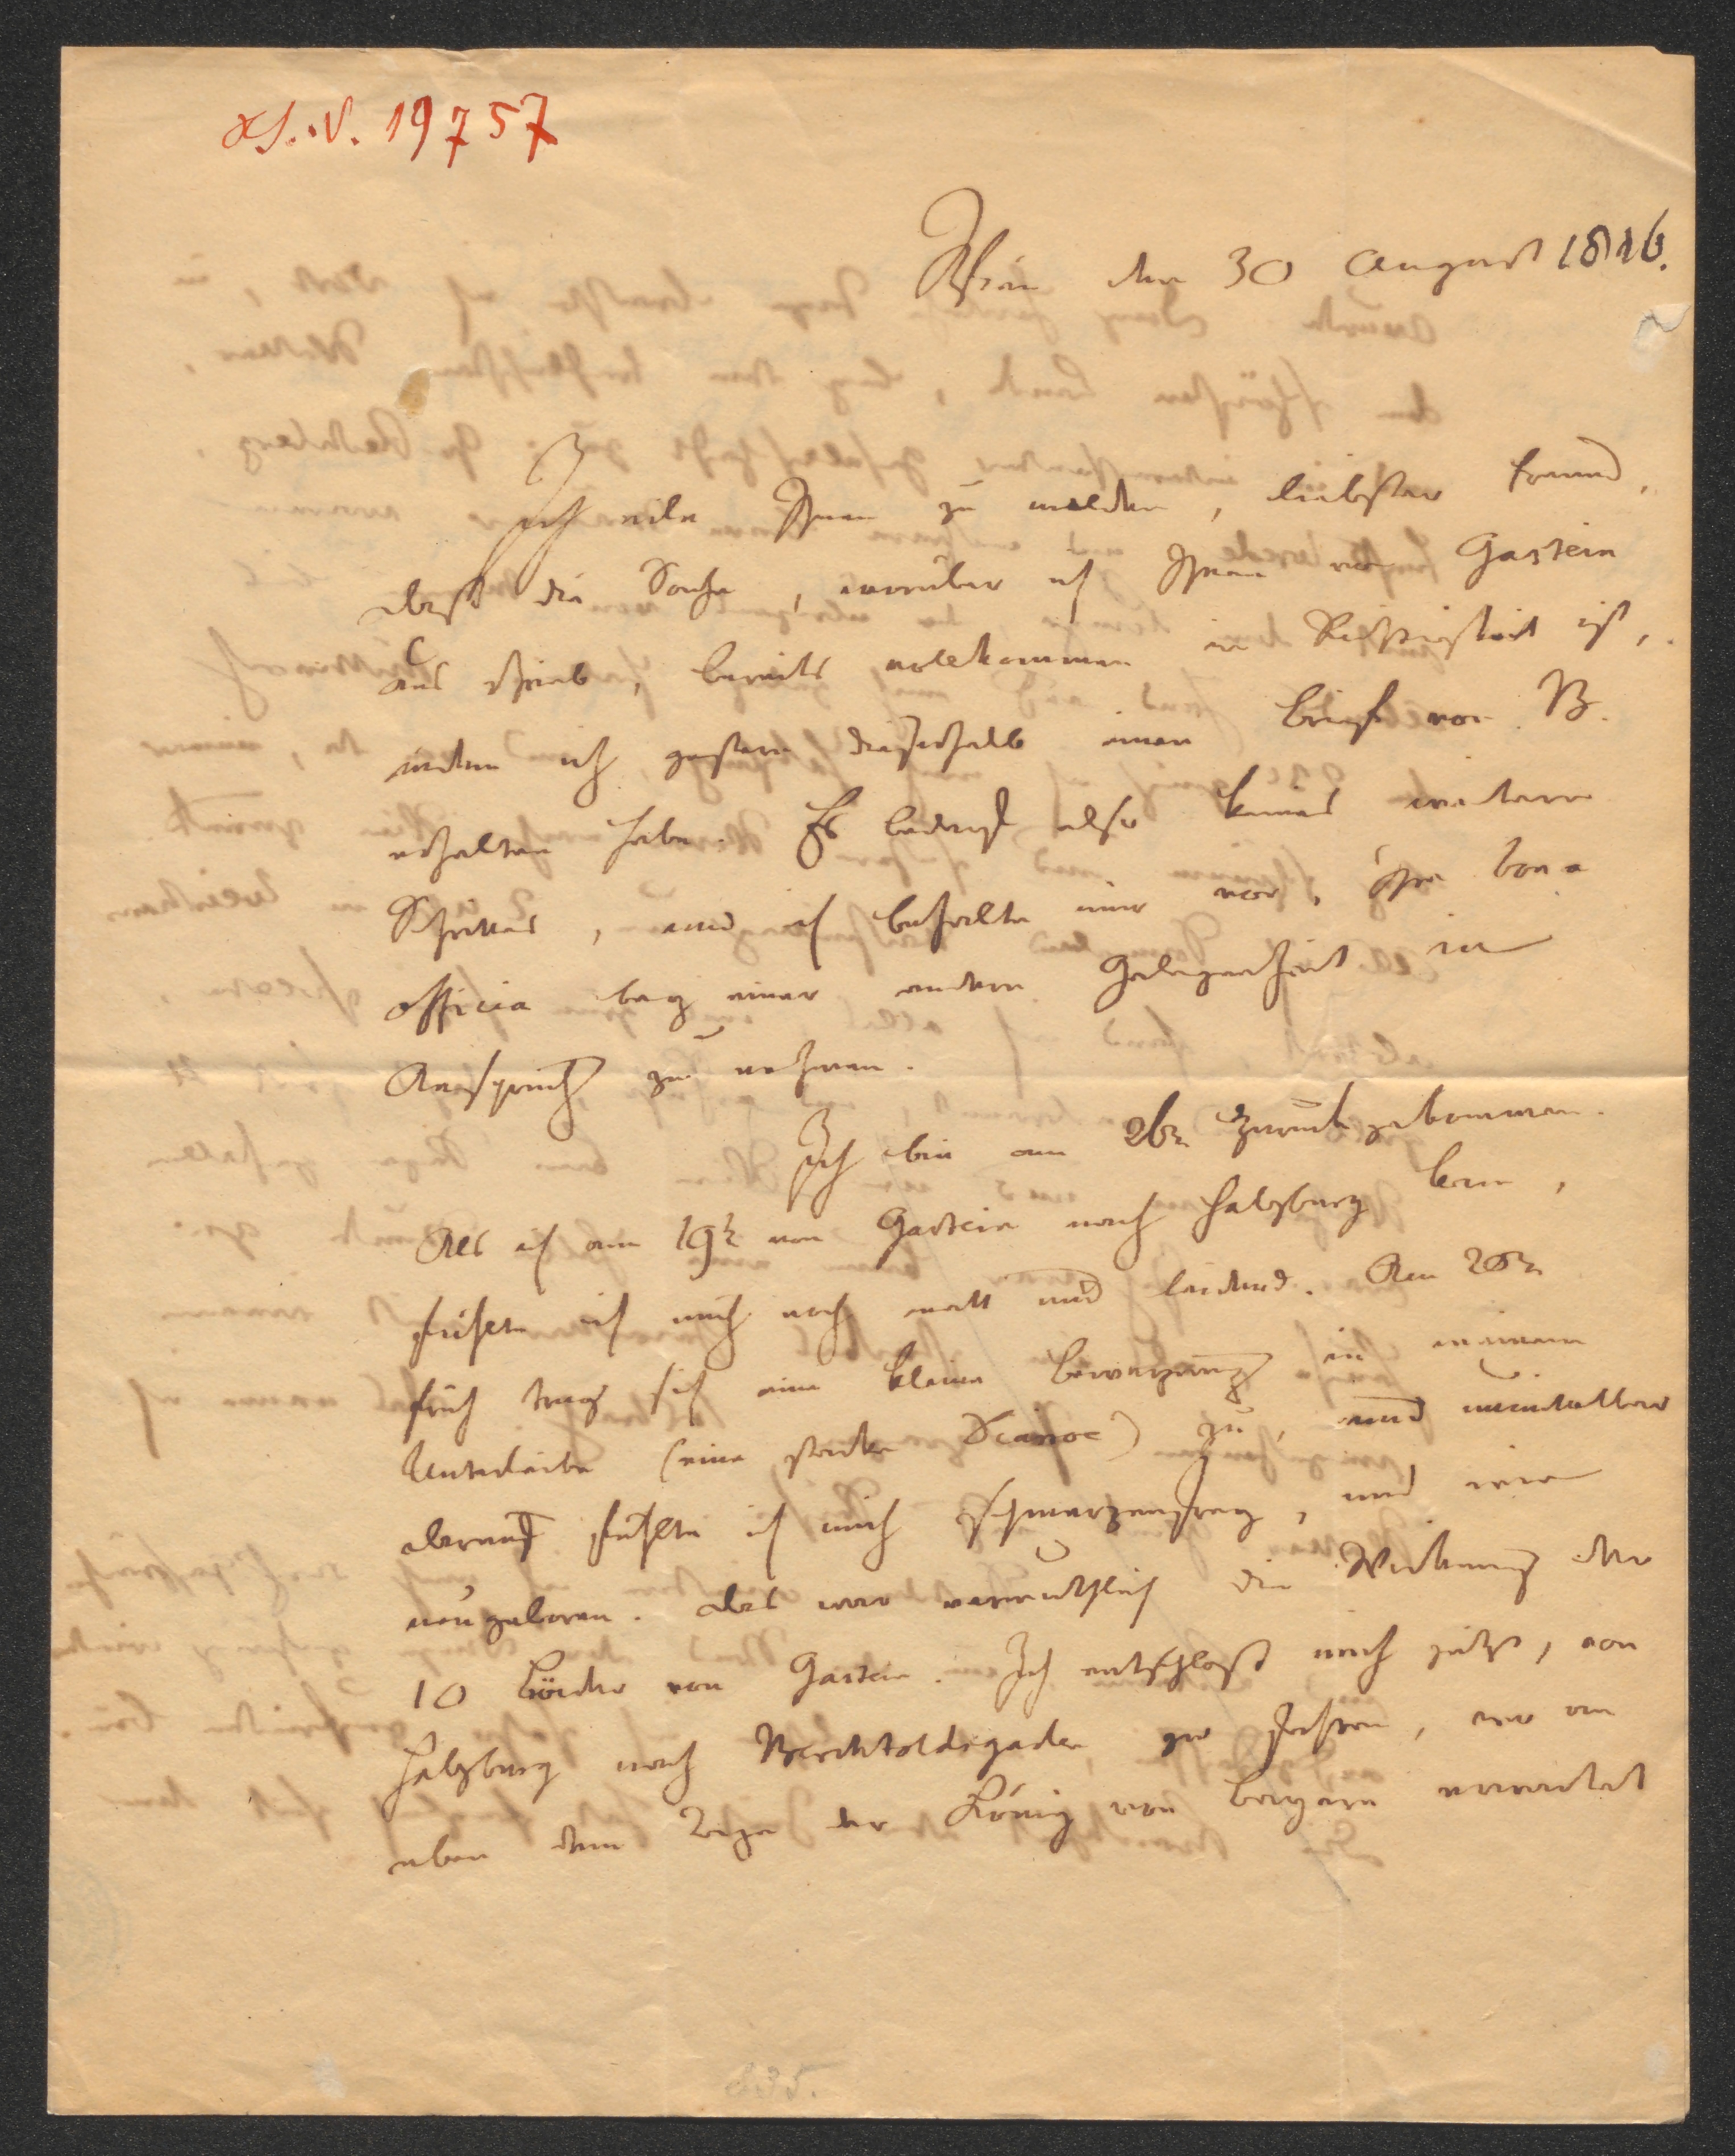 H.I.N. 19757
Wien den 30 August 1816.
Ich eile Ihnen zu melden, liebster Freund,
daß die Sache, worüber ich Ihnen von Gastein
aus schrieb, bereits vollkommen in Richtigkeit ist,
indem ich gestern dieserhalb einen Brief von B.
erhalten habe. Es bedarf also keines weitern
Schrittes, und ich behalte mir vor, Ihre bona
officia bey einer andern Gelegenheit in
Anspruch zu nehmen.
Ich bin am 26n zurück gekommen.
Als ich am 19n von Gastein nach Salzburg kam,
fühlte ich mich noch matt und leidend. Am 20n
früh trug sich eine kleine Bewegung in meinem
Unterleibe (eine starke Diarrhoe) zu, und unmittelbar
darauf fühlte ich mich schmerzenfrey, und wie
neugeboren. Das war vermuthlich die Wirkung der
10 Bäder von Gastein. Ich entschloß mich jetzt, von
Salzburg nach Berchtoldsgaden zu fahren, wo an
eben dem Tage der König von Bayern erwartet